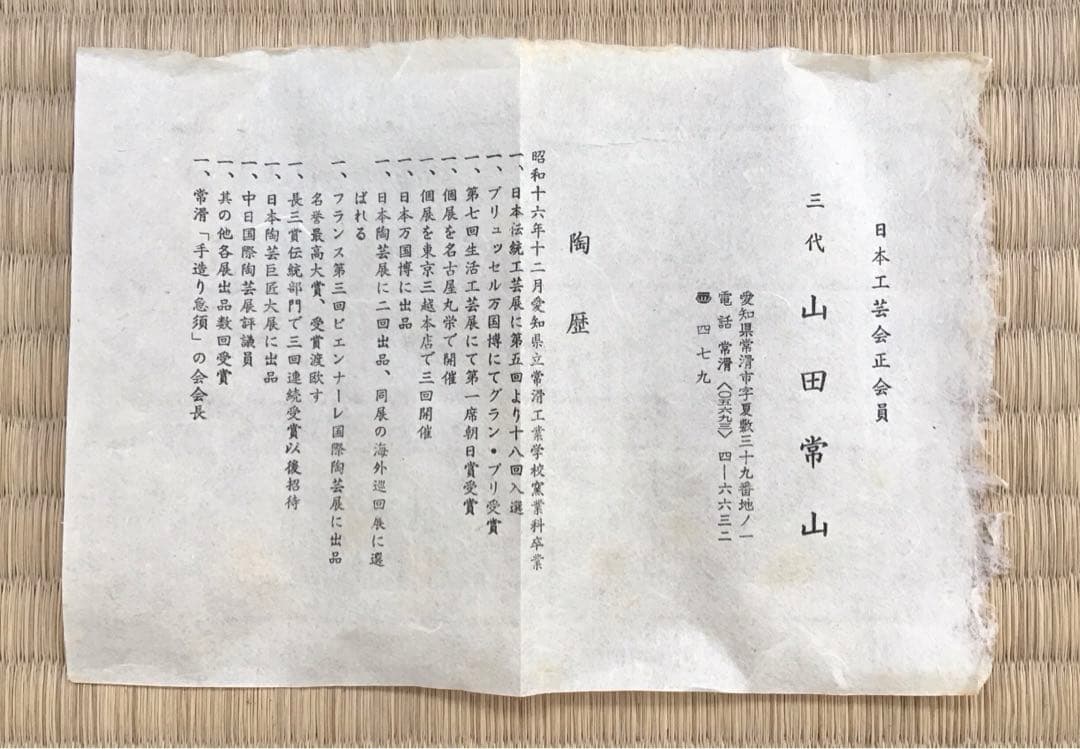 日本工芸会正会員
三代 山田常山
愛知県常滑市字夏敷三十九番地ノ一
電話 常滑〈〇五六九三〉四―六六三二
〠 四七九
陶歴
昭和十六年十二月愛知県立常滑工業学校窯業科卒業
一、日本伝統工芸展に第五回より十八回入選
一、ブリュッセル万国博にてグラン・プリ受賞
一、第七回生活工芸展にて第一席朝日賞受賞
一、個展を名古屋丸栄で開催
一、個展を東京三越本店で三回開催
一、日本万国博に出品
一、日本陶芸展に二回出品、同展の海外巡回展に選
ばれる
一、フランス第三回ビエンナーレ国際陶芸展に出品
名誉最高大賞、受賞渡欧す
一、長三賞伝統部門で三回連続受賞以後招待
一、日本陶芸巨匠大展に出品
一、中日国際陶芸展評議員
一、其の他各展出品数回受賞
一、常滑「手造り急須」の会会長